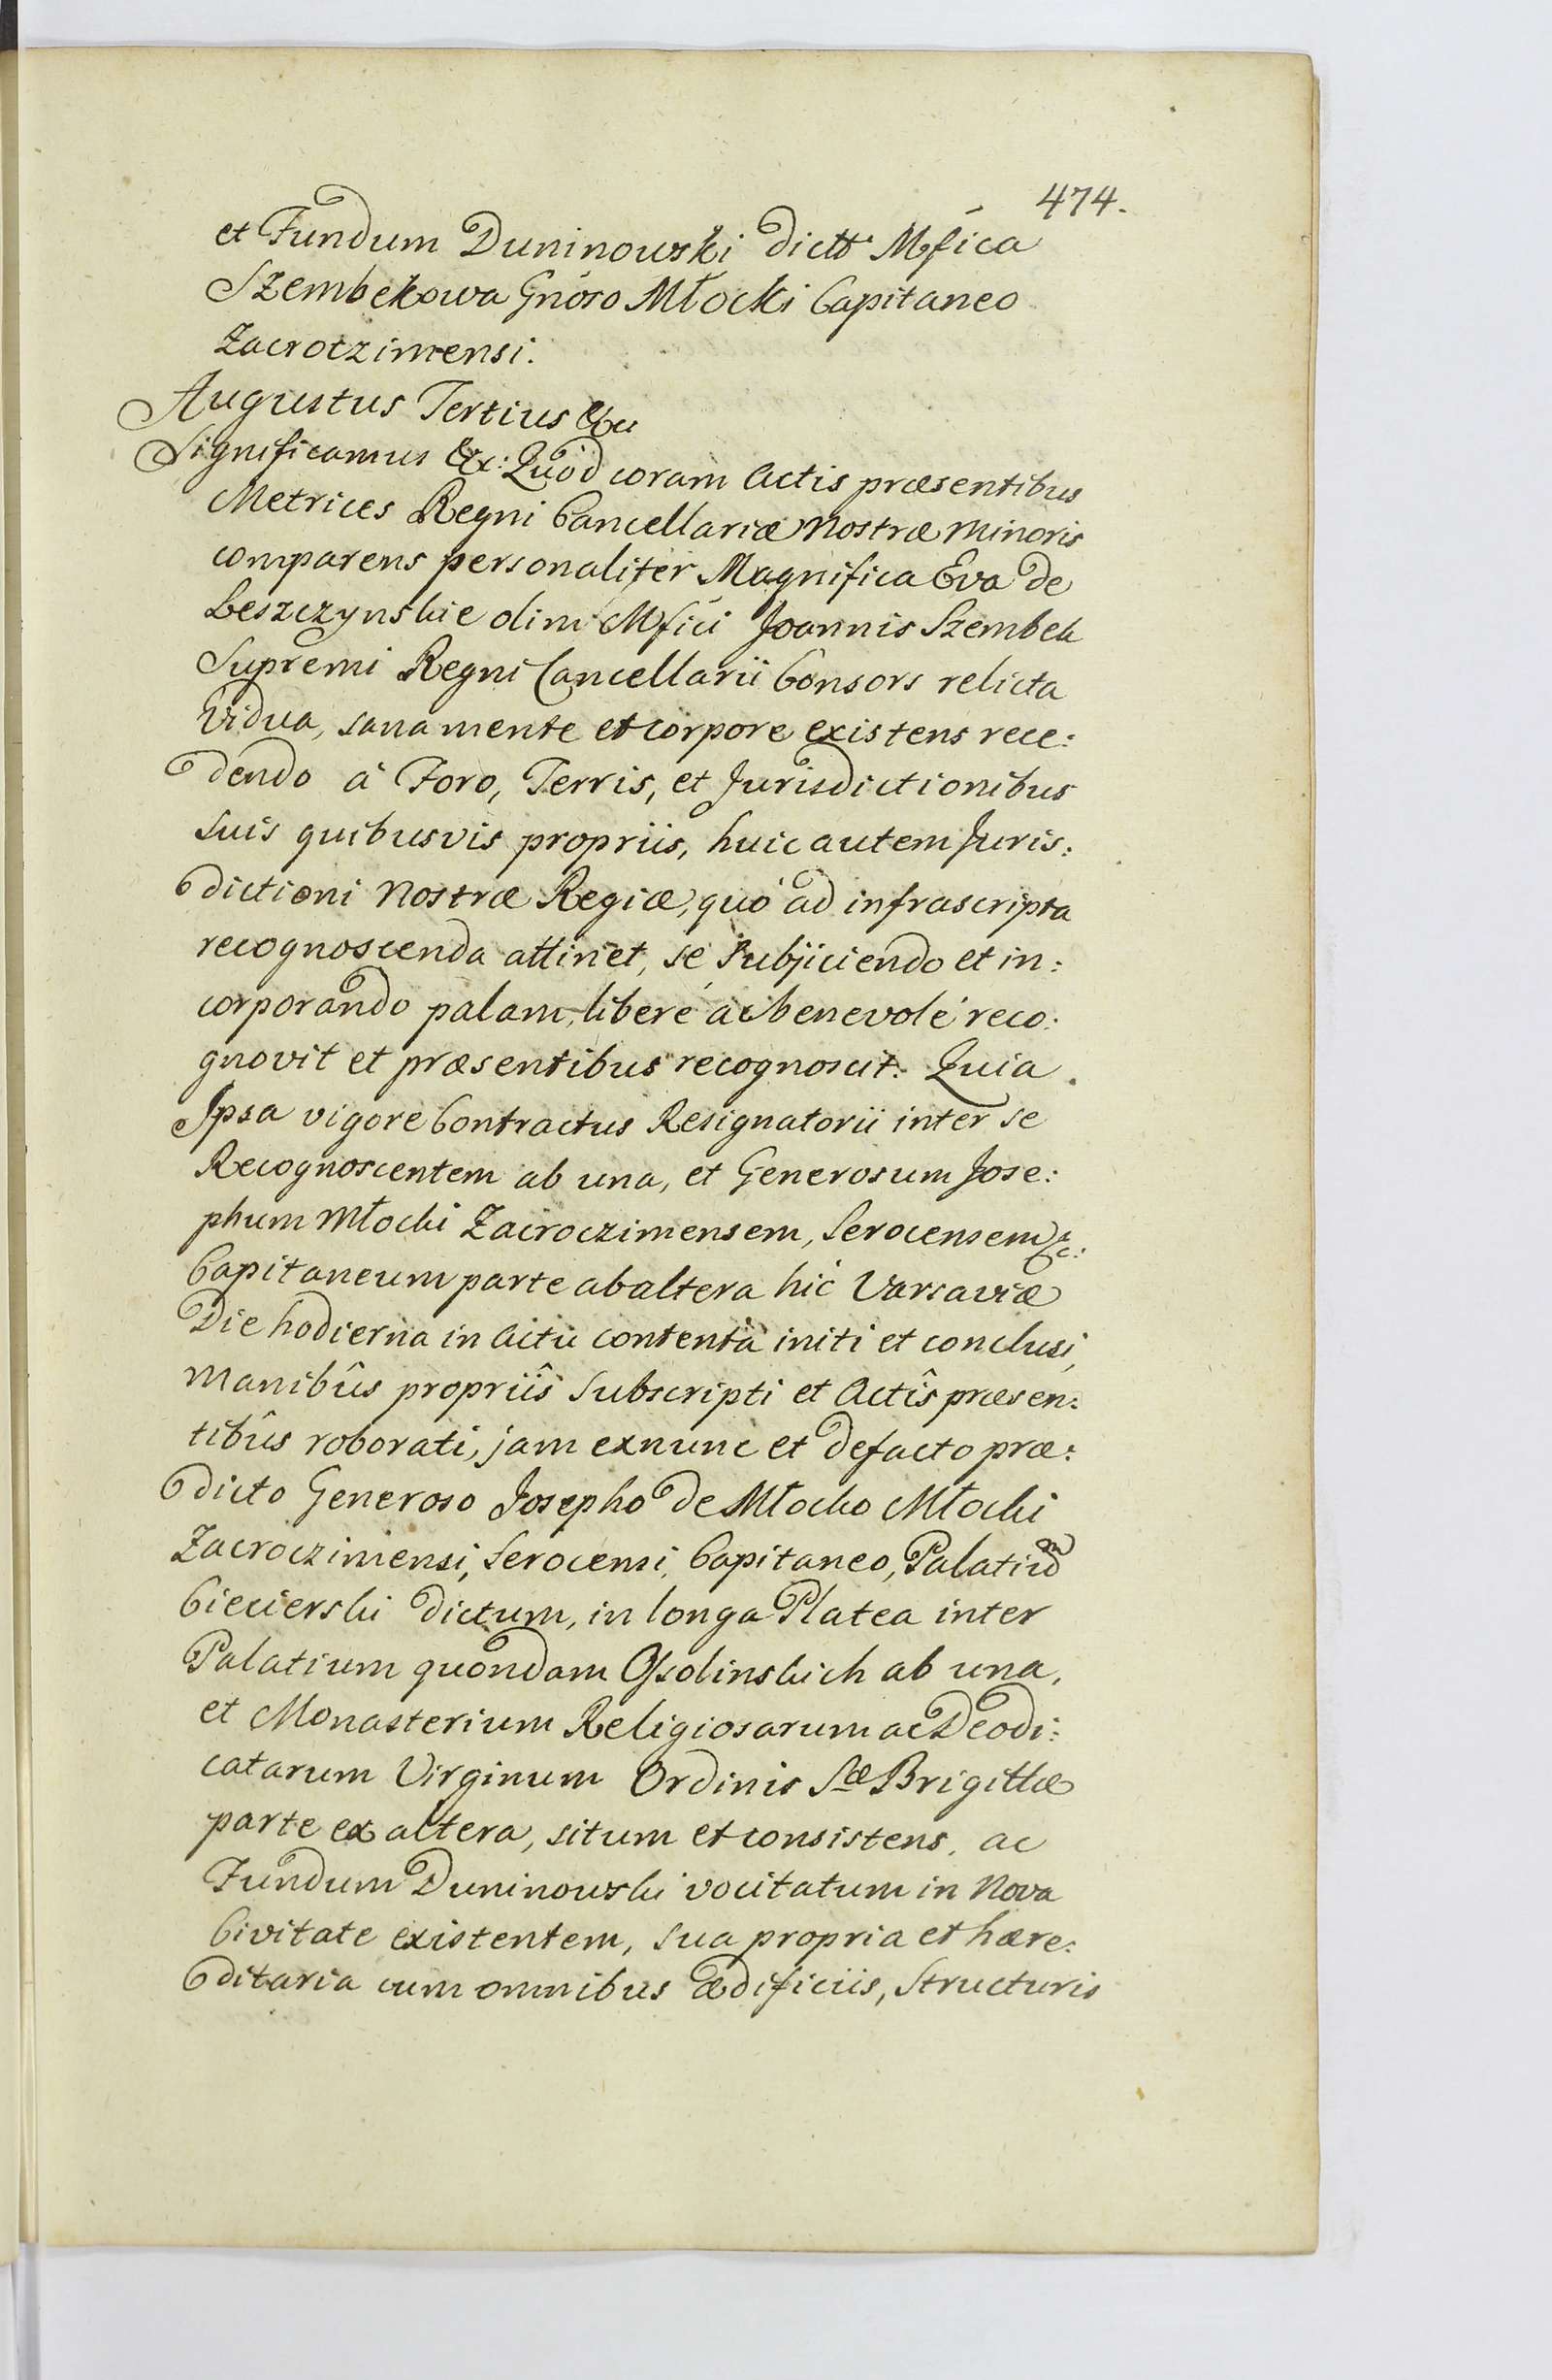 474.
et Fundum Duninowski dictt Mfica
Szembekowa Gnoso Młocki Capitaneo
Zacroczimensi.
Augustus Tertius &cu
Significamus &c: Quod coram Actis præsentibus
Metrices Regni Cancellariæ Nostræ Minoris
comparens personaliter Magnifica Eva de
Leszczynskie olim Mfici Joannis Szembek
Supremi Regni Cancellarii Consors relicta
Vidua, sana mente et corpore existens rece:
dendo à Foro, Terris, et Jurisdictionibus
suis quibusvis propriis, huic autem Juris:
dictioni Nostræ Regiæ, quò ad infrascripta
recognoscenda attinet, se subjiciendo et in:
corporando palam, liberé ac benevolé reco:
gnovit et præsentibus recognoscit. Quia
Ipsa vigore Contractus Resignatorii inter se
Recognoscentem ab una, et Generosum Jose:
phum Młocki Zacroczimensem, Serocensem &c:
Capitaneum parte ab altera hic Varsaviæ
Die hodierna in Actu contenta initi et conclusi,
Manibûs propriîs subscripti et Actîs præsen:
tibûs roborati, jam exnunc et defacto præ:
dicto Generoso Josepho de Młocko Młocki
Zacroczimensi, Serocensi, Capitaneo, Palatiũ
Ciecierski dictum, in longa Platea inter
Palatium quondam Ossolinskich ab una,
et Monasterium Religiosarum ac Deodi:
catarum Virginum Ordinis Sæ Brigittæ
parte ex altera, situm et consistens, ac
Fundum Duninowski vocitatum in Nova
Civitate existentem, sua propria et hære:
ditaria cum omnibus ædificiis, Structuris